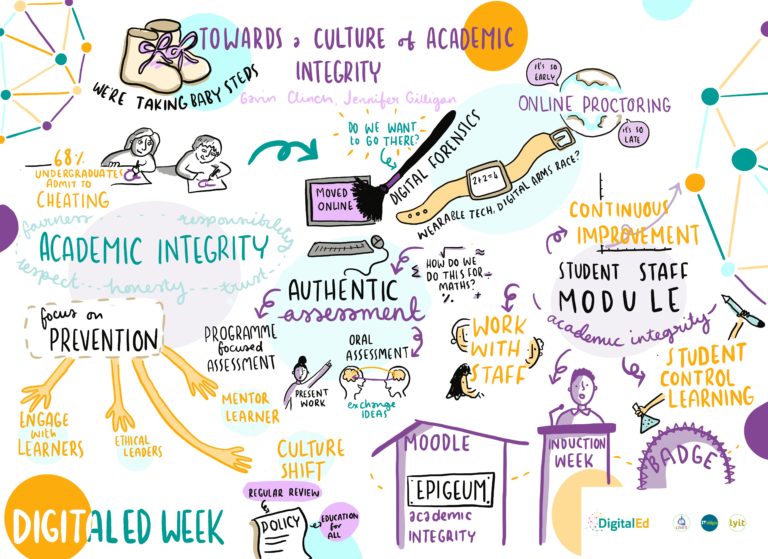 TOWARDS a CULTURE of ACADEMIC
INTEGRITY
Gavin Clinch, Jennifer Gilligan
WE'RE TAKING BABY STEPS
68%
UNDERGRADUATES
ADMIT TO
CHEATING
DO WE WANT
to GO THERE?
MOVED
ONLINE
DIGITAL FORENSICS
2+2=4
WEARABLE TECH, DIGITAL ARMS RACE?
IT'S SO
EARLY
ONLINE PROCTORING
IT'S SO
LATE
fairness
responsibility
ACADEMIC INTEGRITY
respect
honesty
trust
focus on
PREVENTION
ENGAGE
with
LEARNERS
ETHICAL
LEADERS
MENTOR
LEARNER
AUTHENTIC
assessment
HOW DO WE
DO THIS FOR
MATHS?
PROGRAMME
focused
ASSESSMENT
PRESENT
WORK
ORAL
ASSESSMENT
exchange
IDEAS
WORK
WITH
STAFF
CONTINUOUS
IMPROVEMENT
STUDENT STAFF
MODULE
academic integrity
STUDENT
CONTROL
LEARNING
INDUCTION
WEEK
BADGE
MOODLE
EPIGEUM
academic
INTEGRITY
CULTURE
SHIFT
REGULAR REVIEW
POLICY
EDUCATION
for
ALL
DIGITALED WEEK
DigitalEd
lyit